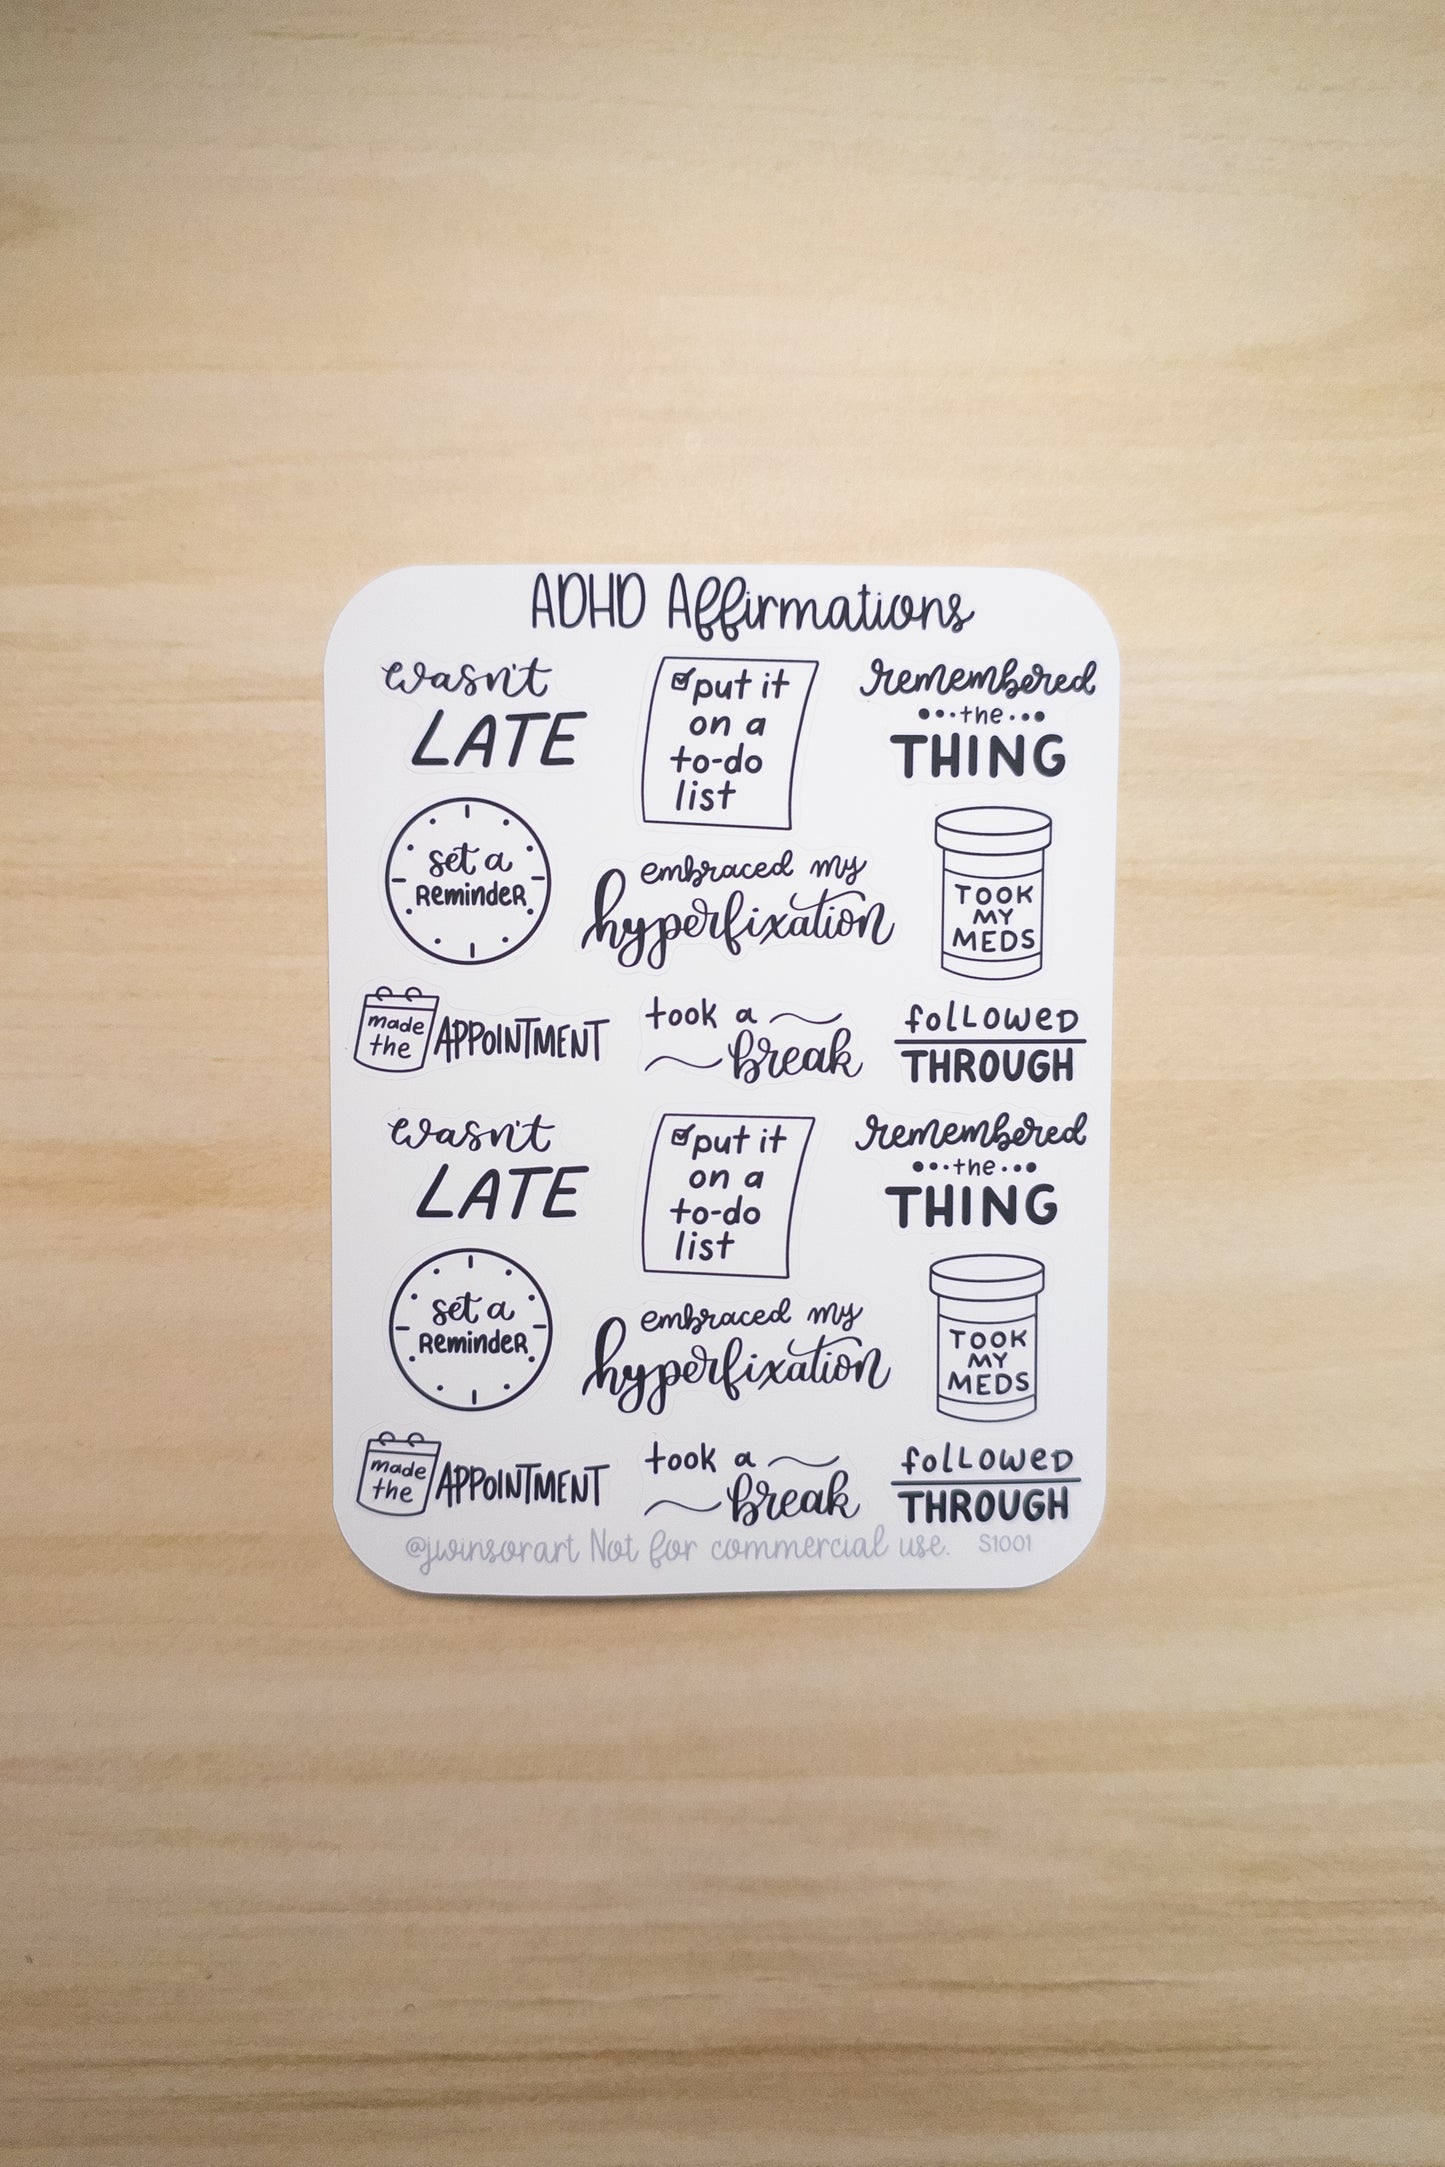 ADHD Affirmations
wasn't
LATE
put it
on a
to-do
list
remembered
the
THING
set a
RemindeR
embraced my
hyperfixation
TOOK
MY
MEDS
made
the
APPOINTMENT
took a
break
foLLOWeD
THROUGH
wasn't
LATE
put it
on a
to-do
list
remembered
the
THING
set a
RemindeR
embraced my
hyperfixation
TOOK
MY
MEDS
made
the
APPOINTMENT
took a
break
foLLOWeD
THROUGH
@jwinsorart Not for commercial use. S1001